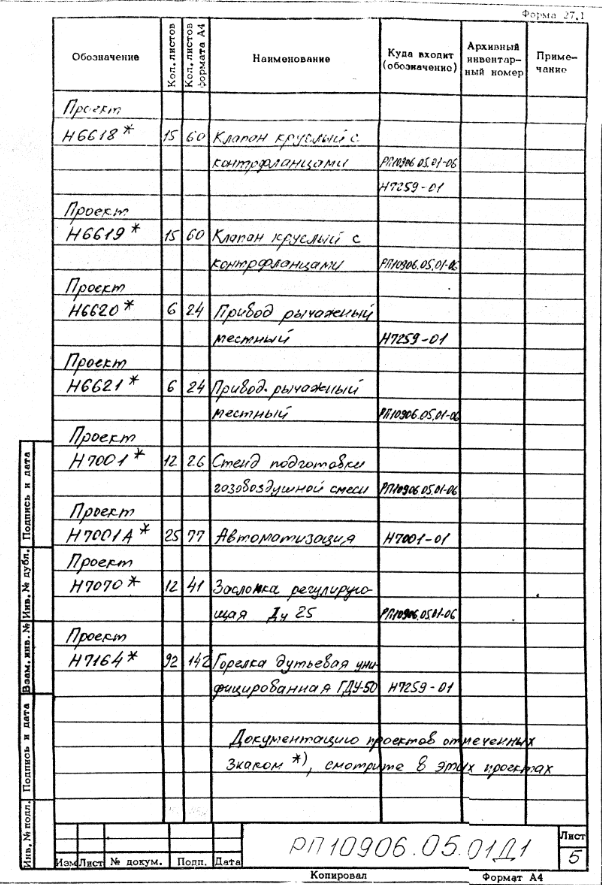 Форма 27.1
Обозначение Кол. листов Кол. листов формата А4 Наименование Куда входит (обозначение) Архивный инвентарный номер Примечание
Проект
Н6618* 15 60 Клапан круглый с
контрфланцами РП10906.05.01-06
Н7259-01
Проект
Н6619* 15 60 Клапан круглый с
контрфланцами РП10906.05.01-06
Проект
Н6620* 6 24 Привод рычажный
местный Н7259-01
Проект
Н6621* 6 24 Привод рычажный
местный РП10906.05.01-06
Проект
Н7001* 12 26 Стенд подготовки
газовоздушной смеси РП10906.05.01-06
Проект
Н7001А* 25 77 Автоматизация Н7001-01
Проект
Н7070* 12 41 Заслонка регулирую-
щая Ду 25 РП10906.05.01-06
Проект
Н7164* 92 142 Горелка дутьевая уни-
фицированная ГДУ-50 Н7259-01
Документацию проектов отмеченных
знаком *), смотрите в этих проектах
Инв. № подл. Подпись и дата Взам. инв. № Инв. № дубл. Подпись и дата
РП10906.05.01Д1
Лист
5
Изм Лист № докум. Подп. Дата
Копировал Формат А4